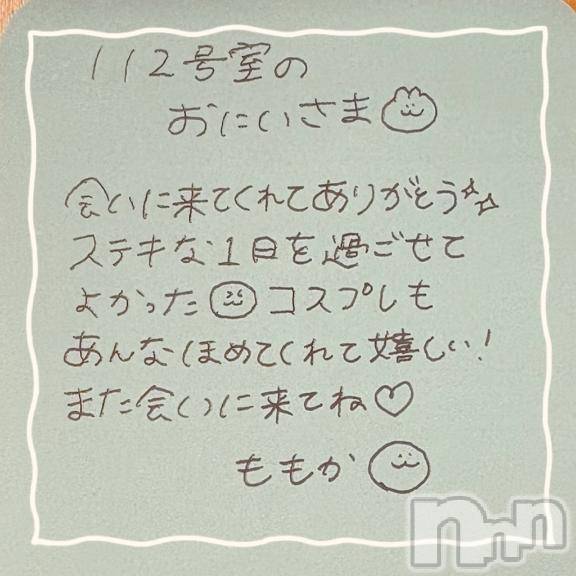 112号室の
おにいさま
会いに来てくれてありがとう☆☆
ステキな1日を過ごせて
よかった コスプレも
あんなほめてくれて嬉しい!
また会いに来てね♡
ももか
nnn